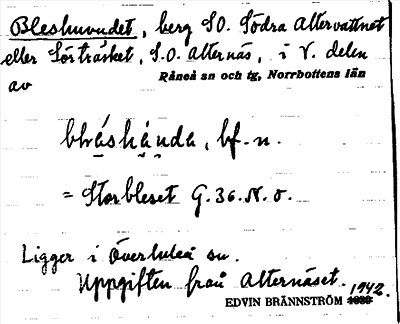 Bleshuvudet, berg SO. Södra Altervattnet
eller Sörträsket, S.O. Alternäs, i V. delen
Råneå sn och tg, Norrbottens län
av
bf. n.
= Storbleset G. 36. N. o.
Ligger i Överluleå sn.
Uppgiften från Alternäset. 1942.
EDVIN BRÄNNSTRÖM